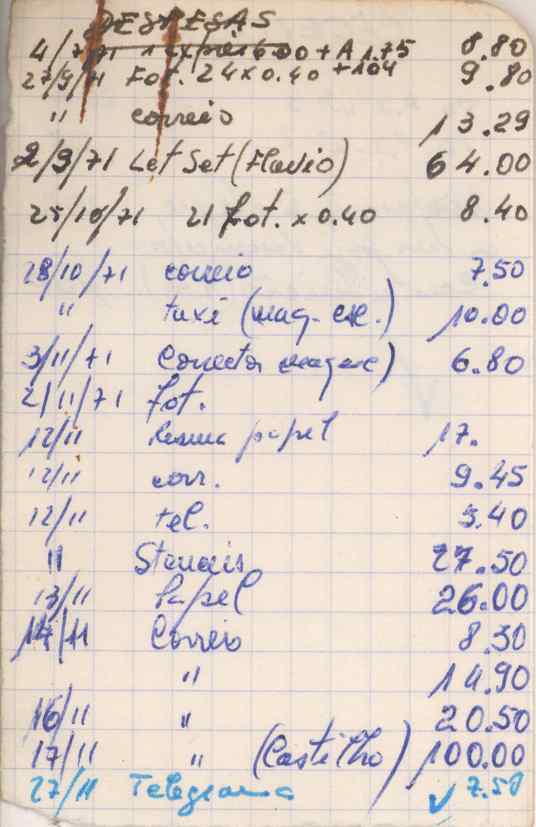 DESPESAS
4/7/71 1.75 8.80
27/9/71 Fot. 24x0.40 +104 9.80
" correio 13.29
2/9/71 Let Set (Flavio) 64.00
25/10/71 21 fot. x 0.40 8.40
28/10/71 correio 7.50
" taxi (maq. esc.) 10.00
3/11/71 Corrector 6.80
2/11/71 fot.
12/11 Resma papel 17.
12/11 corr. 9.45
12/11 tel. 3.40
" Stencis 27.50
13/11 Papel 26.00
14/11 Correio 8.30
" 14.90
16/11 " 20.50
17/11 " (Castilho) 100.00
27/11 Telegrama √ 7.50